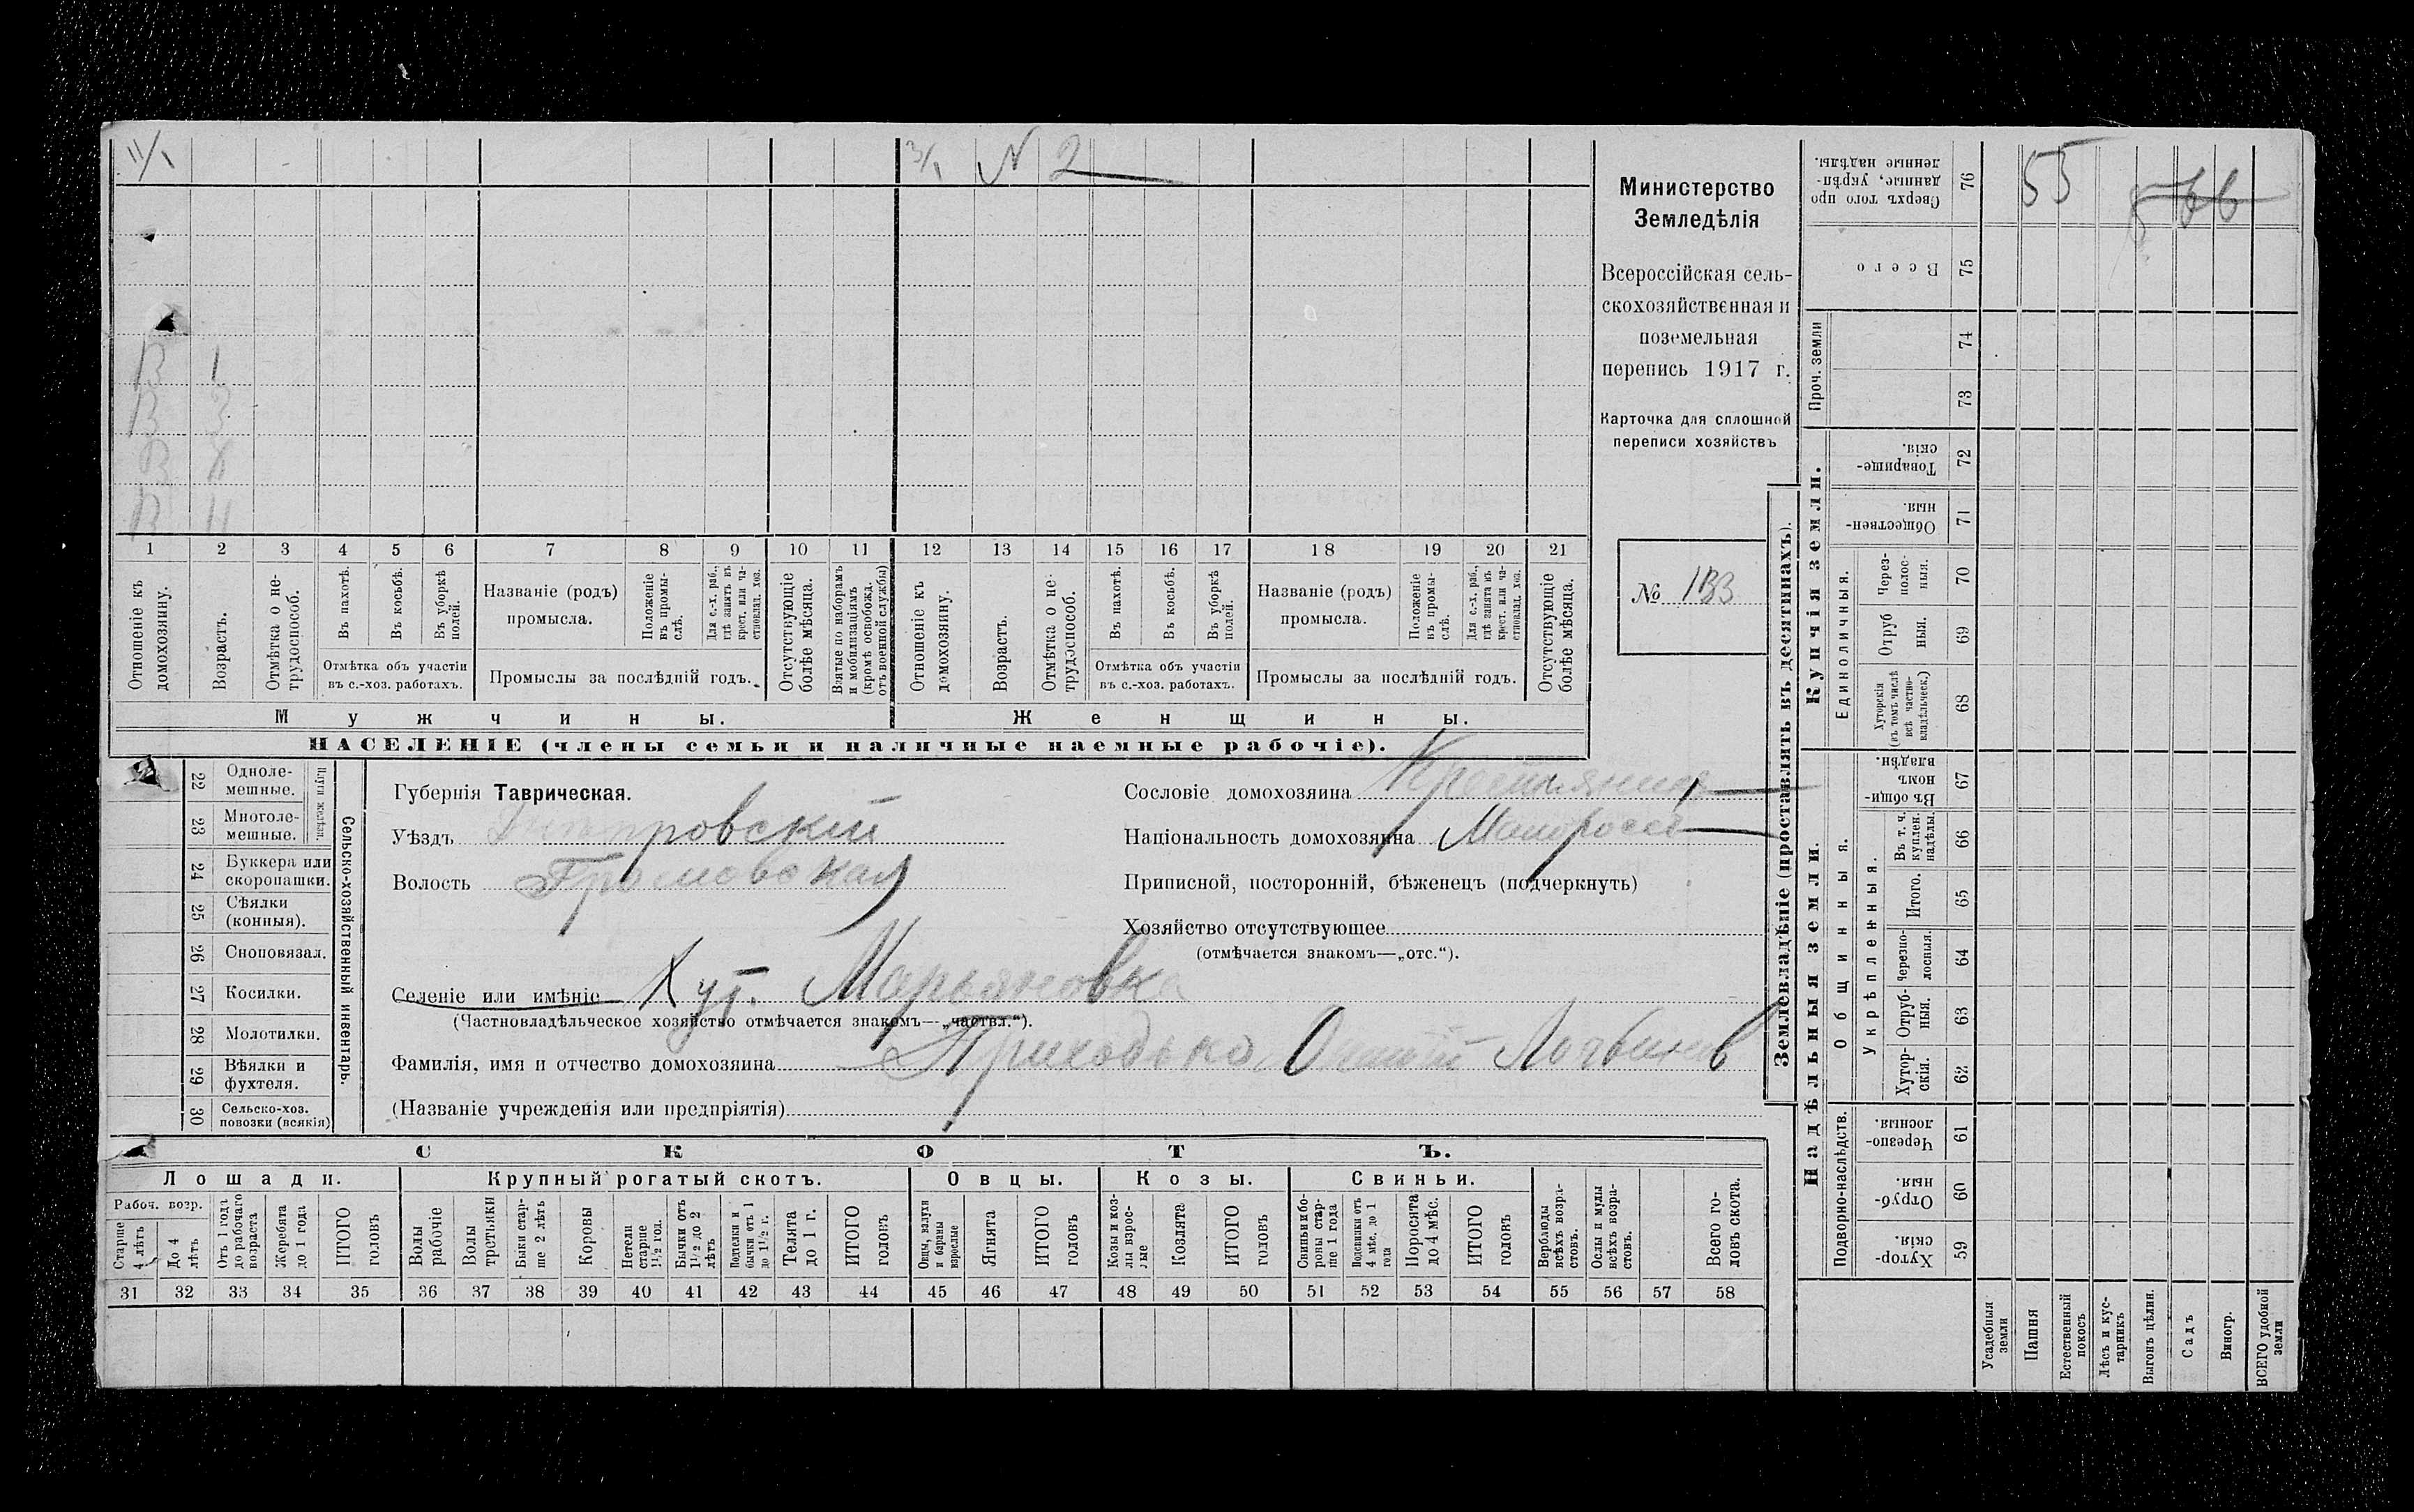 11/1
3/1 N 2
В 1
В 3
В Х
В Н
1 2 3 4 5 6 7 8 9 10 11 12 13 14 15 16 17 18 19 20 21
Отношеніе къ домохозяину.
Возрастъ.
Отмѣтка о не-трудоспособ.
Въ пахотѣ.
Въ косьбѣ.
Въ уборкѣ полей.
Отмѣтка объ участіи
въ с.-хоз. работахъ.
Названіе (родъ)
промысла.
Положеніе въ промы-слѣ.
Для с.-х. раб., гдѣ занятъ въ крест. или ча-стновлад. хоз.
Промыслы за послѣдній годъ.
Отсутствующіе болѣе мѣсяца.
Взятые по наборамъ и мобилизаціямъ (кромѣ освобожд. отъ военной службы)
Отношеніе къ домохозяину.
Возрастъ.
Отмѣтка о не-трудоспособ.
Въ пахотѣ.
Въ косьбѣ.
Въ уборкѣ полей.
Отмѣтка объ участіи
въ с.-хоз. работахъ.
Названіе (родъ)
промысла.
Положеніе въ промы-слѣ.
Для с.-х. раб., гдѣ занята въ крест. или ча-стновлад. хоз.
Промыслы за послѣдній годъ.
Отсутствующіе болѣе мѣсяца.
Мужчины.
Женщины.
НАСЕЛЕНІЕ (члены семьи и наличные наемные рабочіе).
Министерство
Земледѣлія
Всероссійская сель-
скохозяйственная и
поземельная
перепись 1917 г.
Карточка для сплошной
переписи хозяйствъ
№ 133
22 Одноле-мешные.
23 Многоле-мешные.
Плуги желѣзн.
24 Буккера или скоропашки.
25 Сѣялки (конныя).
26 Сноповязал.
27 Косилки.
28 Молотилки.
29 Вѣялки и фухтеля.
30 Сельско-хоз. повозки (всякія)
Сельско-хозяйственный инвентарь.
Губернія Таврическая.
Уѣздъ Днѣпровскій
Волость Громовская
Селеніе или имѣніе Хут. Марьяновка
(Частновладѣльческое хозяйство отмѣчается знакомъ—„частвл.“).
Фамилія, имя и отчество домохозяина Приходько
(Названіе учрежденія или предпріятія)
Сословіе домохозяина Крестьянинъ
Національность домохозяина Малоросс
Приписной, посторонній, бѣженецъ (подчеркнуть)
Хозяйство отсутствующее
(отмѣчается знакомъ—„отс.“).
СКОТЪ.
Лошади.
Крупный рогатый скотъ.
Овцы.
Козы.
Свиньи.
Рабоч. возр.
Старше 4 лѣтъ
До 4 лѣтъ
Отъ 1 года до рабочаго возраста
Жеребята до 1 года
ИТОГО головъ
Волы рабочіе
Волы третьяки
Быки стар-ше 2 лѣтъ
Коровы
Нетели старше 1½ год.
Бычки отъ 1½ до 2 лѣтъ
Подтелки и бычки отъ 1 до 1½ г.
Телята до 1 г.
ИТОГО головъ
Овцы, валухи и бараны взрослые
Ягнята
ИТОГО головъ
Козы и коз-лы взрос-лые
Козлята
ИТОГО головъ
Свиньи и бо-ровы стар-ше 1 года
Подсвинки отъ 4 мѣс. до 1 года
Поросята до 4 мѣс.
ИТОГО головъ
Верблюды всѣхъ возра-стовъ.
Ослы и мулы всѣхъ возра-стовъ.
Всего го-ловъ скота.
31 32 33 34 35 36 37 38 39 40 41 42 43 44 45 46 47 48 49 50 51 52 53 54 55 56 57 58
Землевладѣніе (проставлять въ десятинахъ).
Купчія земли.
Надѣльныя земли.
Сверхъ того про-данные, укрѣп-ленные надѣлы. 76
55
Всего 75
Проч. земли
74
73
Товарище-скія. 72
Обществен-ныя. 71
Единоличныя.
Через-полос-ныя. 70
Отруб ныя. 69
Хуторскія (въ томъ числѣ всѣ частно-владѣльческ.) 68
Въ общи-номъ владѣн. 67
Общинныя.
Укрѣпленныя.
Въ т. ч. куплен. надѣлы. 66
Итого. 65
Черезпо-лосныя. 64
Отруб-ныя. 63
Хутор-скія. 62
Подворно-наслѣдств.
Черезпо-лосныя. 61
Отруб-ныя. 60
Хутор-скія. 59
Усадебныя земли
Пашня
Естественный покосъ
Лѣсъ и кус-тарникъ
Выгонъ цѣлин.
Садъ
Виногр.
ВСЕГО удобной земли